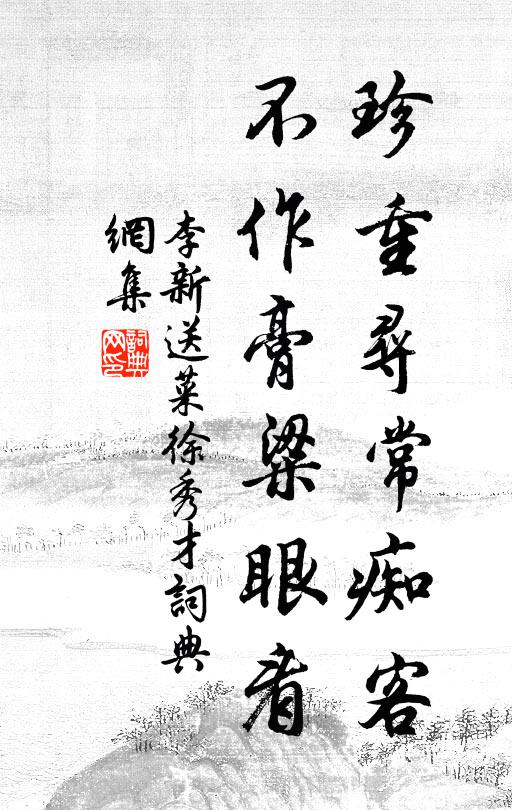 珍重尋常痴客
不作膏粱眼看
李新送菜徐秀才詞典
網集
詞典
网印